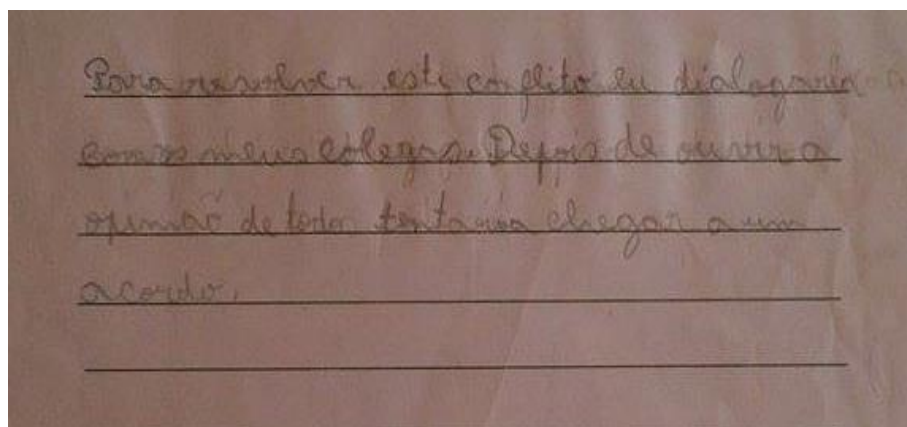 Para resolver este conflito eu dialogaria
com os meus colegas. Depois de ouvir a
opinião de todos tentaria chegar a um
acordo.